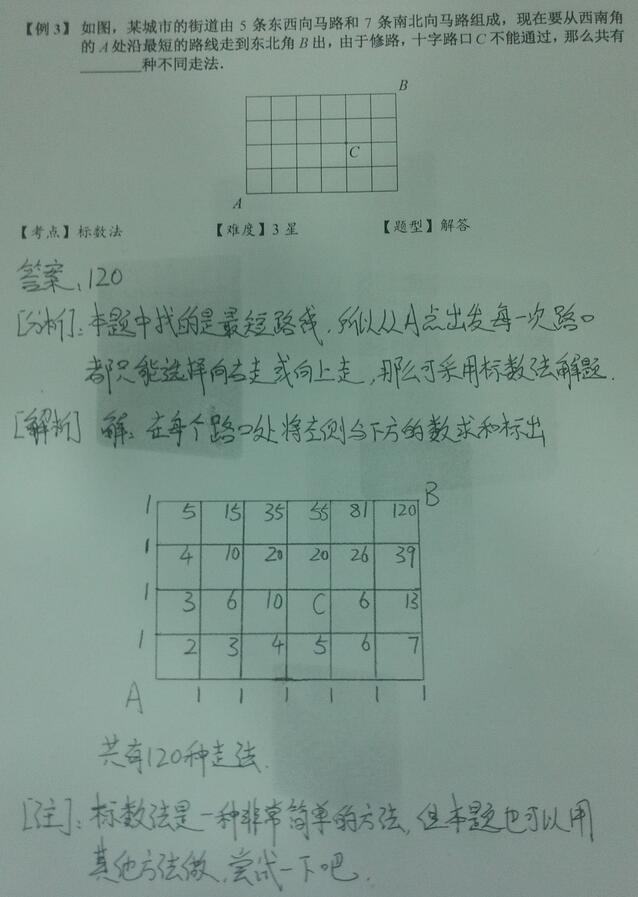 【例 3】 如图，某城市的街道由 5 条东西向马路和 7 条南北向马路组成，现在要从西南角
的 A 处沿最短的路线走到东北角 B 出，由于修路，十字路口 C 不能通过，那么共有
________种不同走法．
B
C
A
【考点】标数法 【难度】3 星 【题型】解答
答案：120
[分析]：本题中找的是最短路线，所以从A点出发每一次路口
都只能选择向右走或向上走，那么可采用标数法解题．
[解析] 解：在每个路口处将左侧与下方的数求和标出
1 5 15 35 55 81 120 B
1 4 10 20 20 26 39
1 3 6 10 C 6 13
1 2 3 4 5 6 7
A 1 1 1 1 1 1
共有120种走法．
[注]：标数法是一种非常简单的方法，但本题也可以用
其他方法做，尝试一下吧．